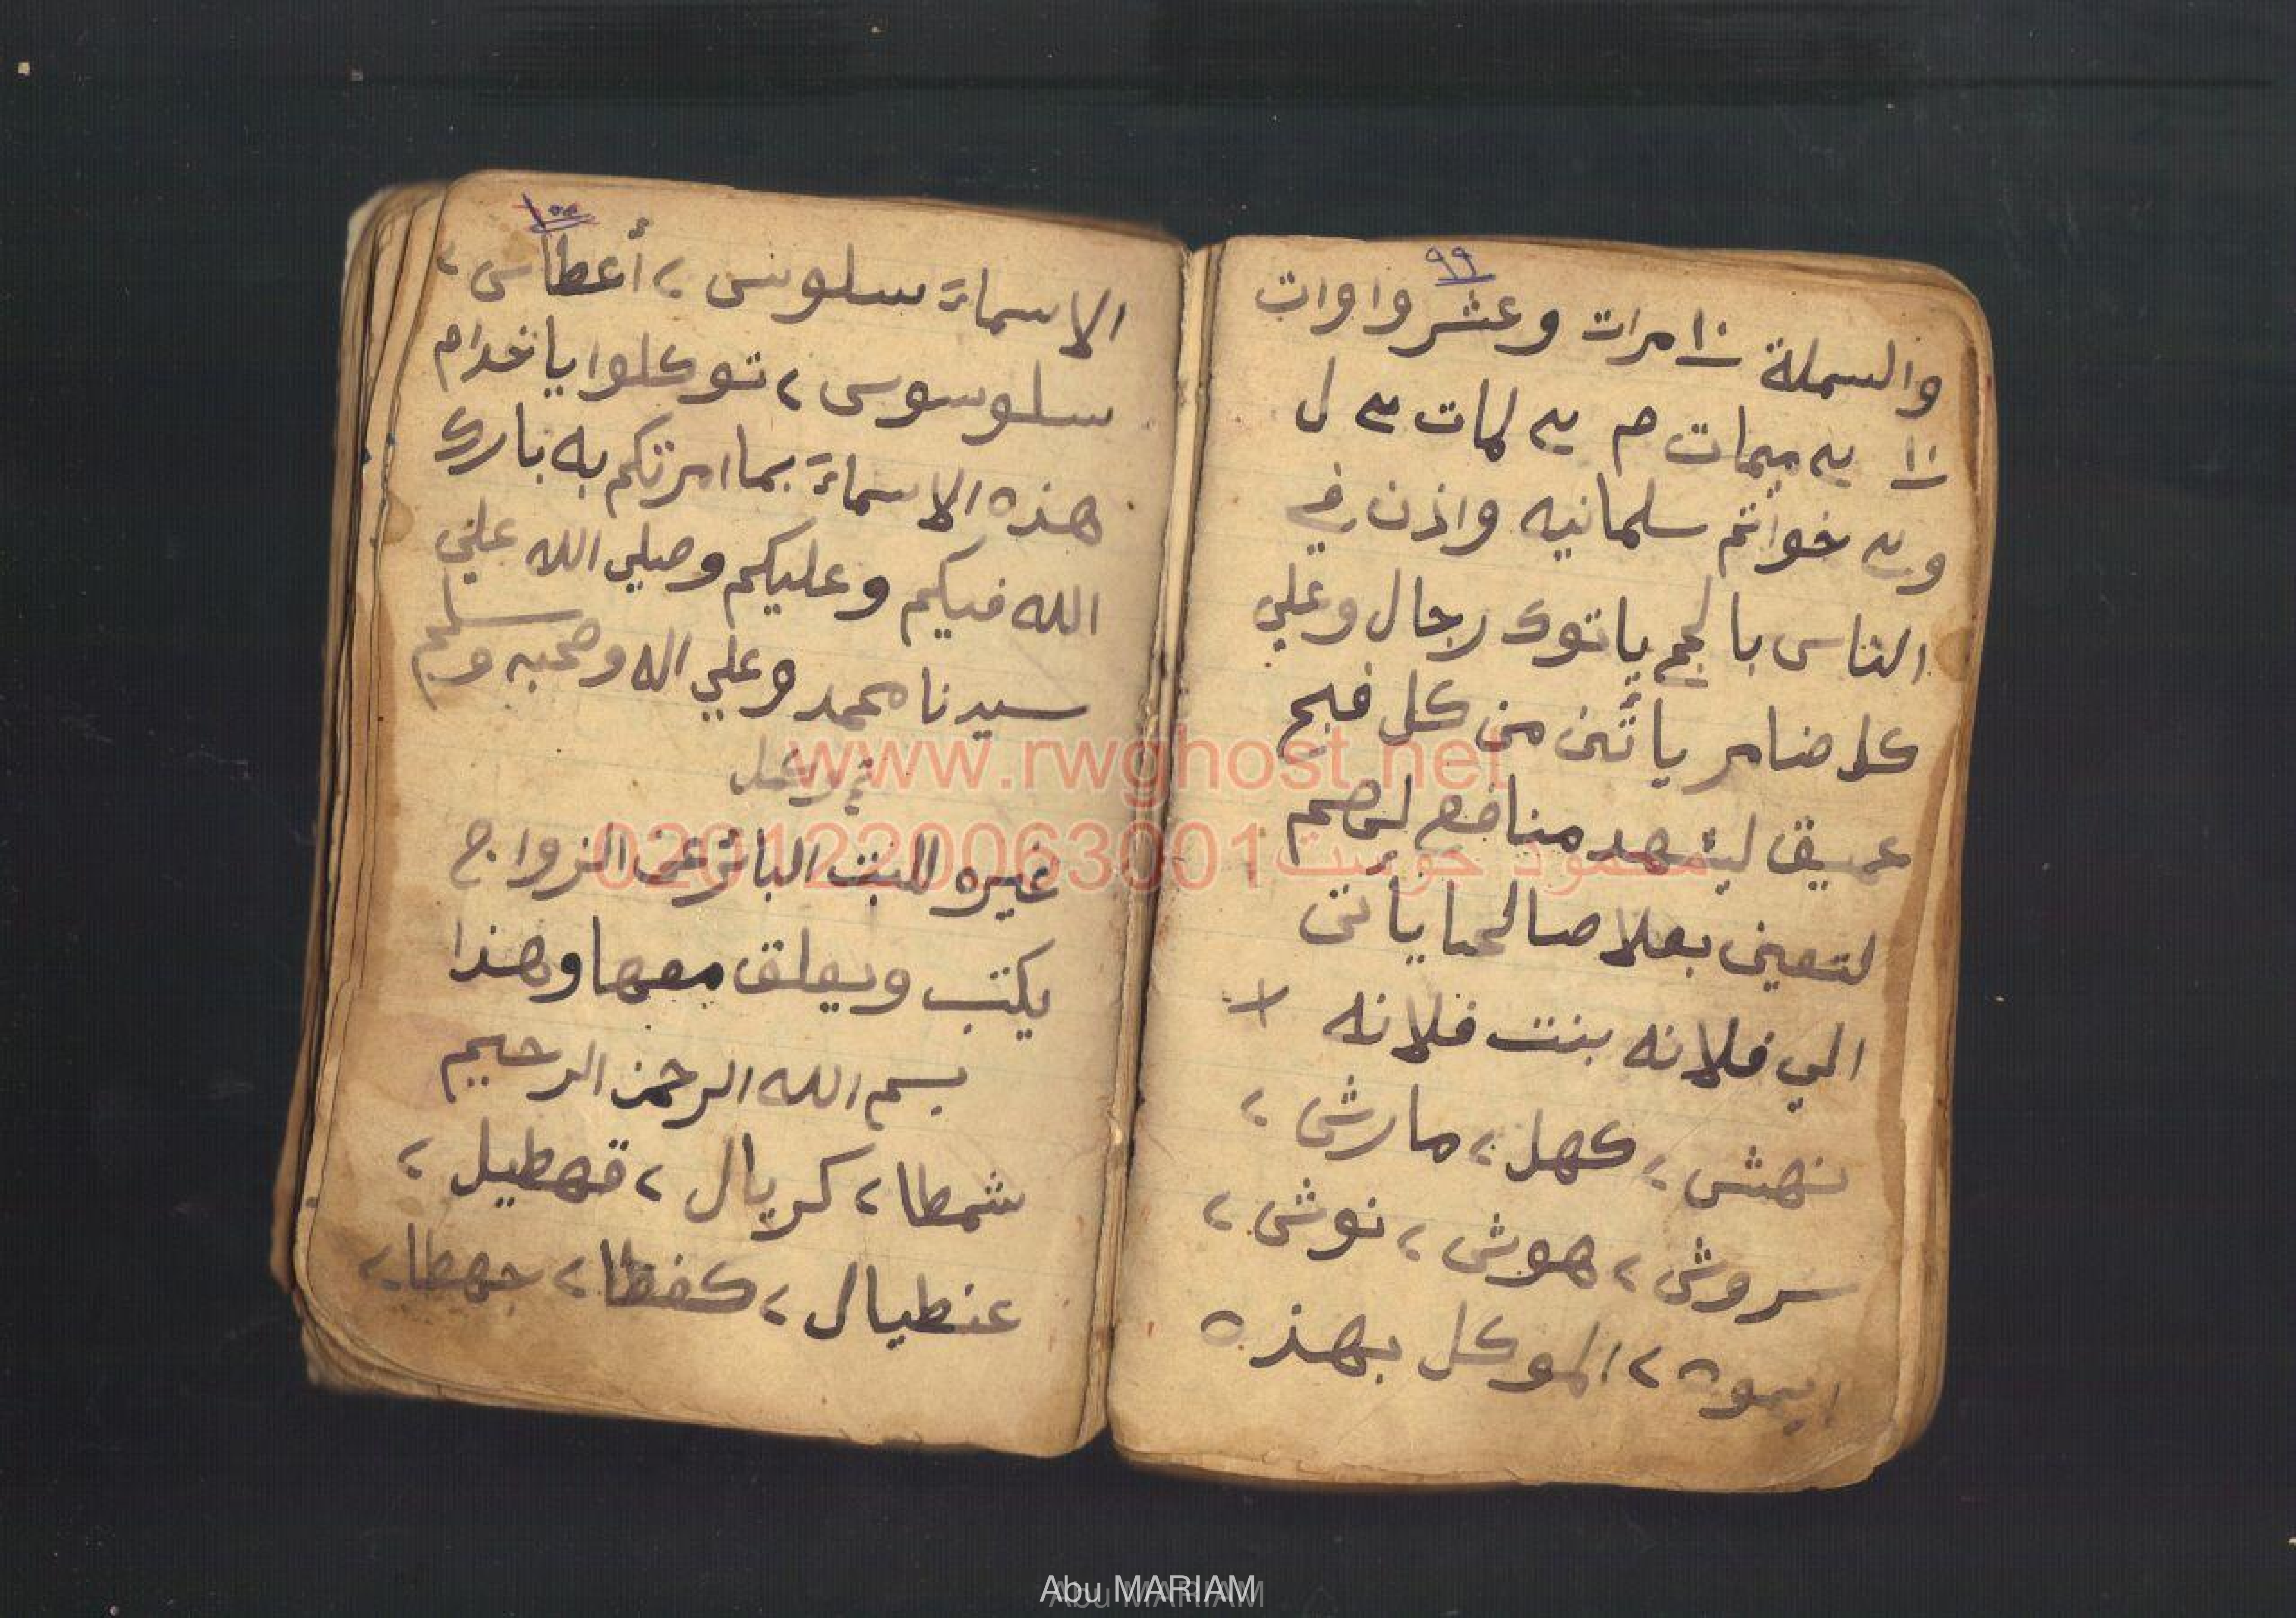 ٩٩
والبسملة ١٠ مرات وعشر واوات
١٠ ميمات م لامات ل
و خواتم سلمانيه واذن في
الناس بالحج ياتوك رجال وعلي
كل ضامر يأتين من كل فج
عميق ليشهد منافع لهم
لتعين بعلا صالحا يأتى
الي فلانه بنت فلانه
نهش، كهل، مارش،
سروش، هوش، نوش،
الموكل بهذه
١٠٠
الاسماء سلوس، أعطاس،
سلوسوس، توكلوا ياخدام
هذه الاسماء بما امرتكم به بارك
الله فيكم وعليكم وصلي الله علي
سيدنا محمد وعلي اله وصحبه وسلم
غيره للبنت البائر عن الزواج
يكتب ويعلق معها وهذا
بسم الله الرحمن الرحيم
شمطا، كريال، قهطيل،
عنطيال، كفظا، جهطا،
www.rwghost.net
محمود جوست 0201220063001
Abu MARIAM